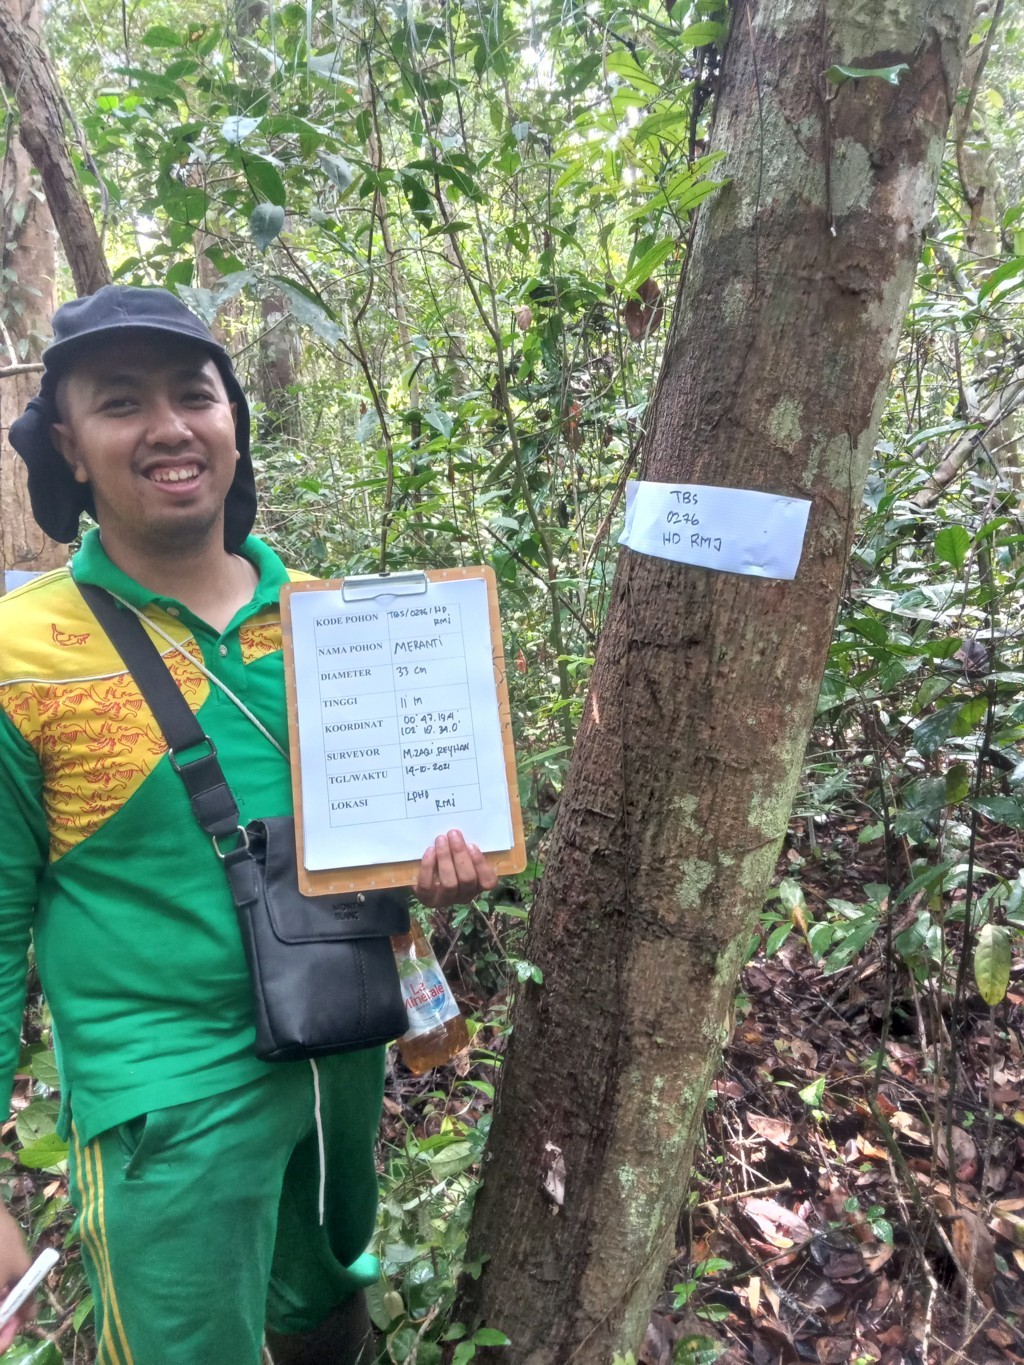 TBS
0276
HD RMJ
KODE POHON TBS/0276/HD
RMJ
NAMA POHON MERANTI
DIAMETER 33 cm
TINGGI 11 m
KOORDINAT 00° 47. 19.4'
102° 18. 34.0'
SURVEYOR M.ZAQI REYHAN
TGL/WAKTU 14-10-2021
LOKASI LPHD
RMJ
MONT
BLANC
Le
Minerale